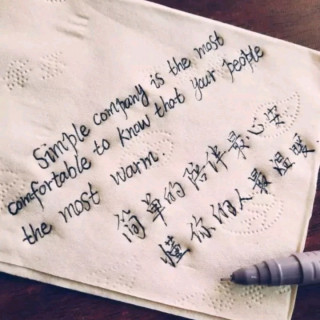 Simple company is the most
comfortable to know that your people
the most warm
简单的陪伴最心安
懂你的人最温暖